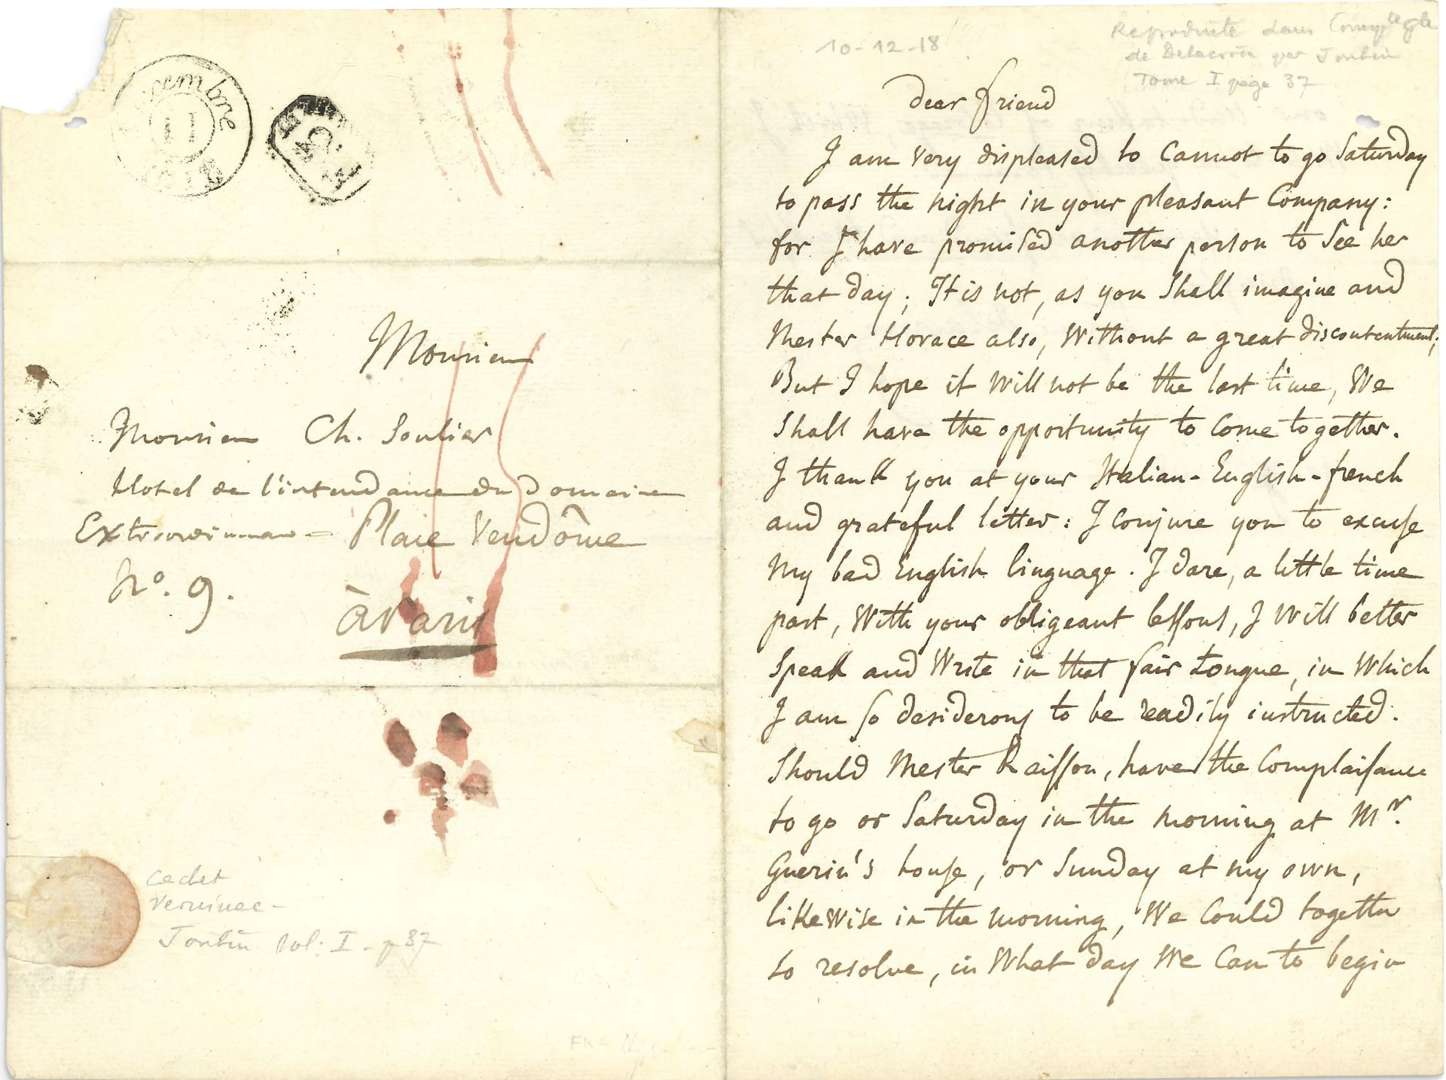 Décembre
11
10-12-18
Reproduite dans
de Delacroix par Joubin
Tome I page 37
Monsieur
Monsieur Ch. Soulier
Hotel de l'intendance du Domaine
Extraordinaire = Place Vendôme
N.º 9.
à Paris
cachet
Verninac -
Joubin Vol. I - p 37
dear friend
I am very displeased to cannot to go Saturday
to pass the night in your pleasant Company:
for I have promised another person to see her
that day; It is not, as you shall imagine and
Mester Horace also, Without a great discontentment;
But I hope it will not be the last time, We
shall have the opportunity to come together.
I thank you at your Italian-English-french
and grateful letter: I conjure you to excuse
my bad English linguage. I dare, a little time
past, With your obligeant lessons, I will better
speak and Write in that fair tongue, in Which
I am so desiderous to be readily instructed.
Should Mester Raisson, have the Complaisance
to go or Saturday in the morning at Mr.
Guerin's house, or Sunday at my own,
likewise in the morning, We Could together
to resolve, in What day We Can to begin